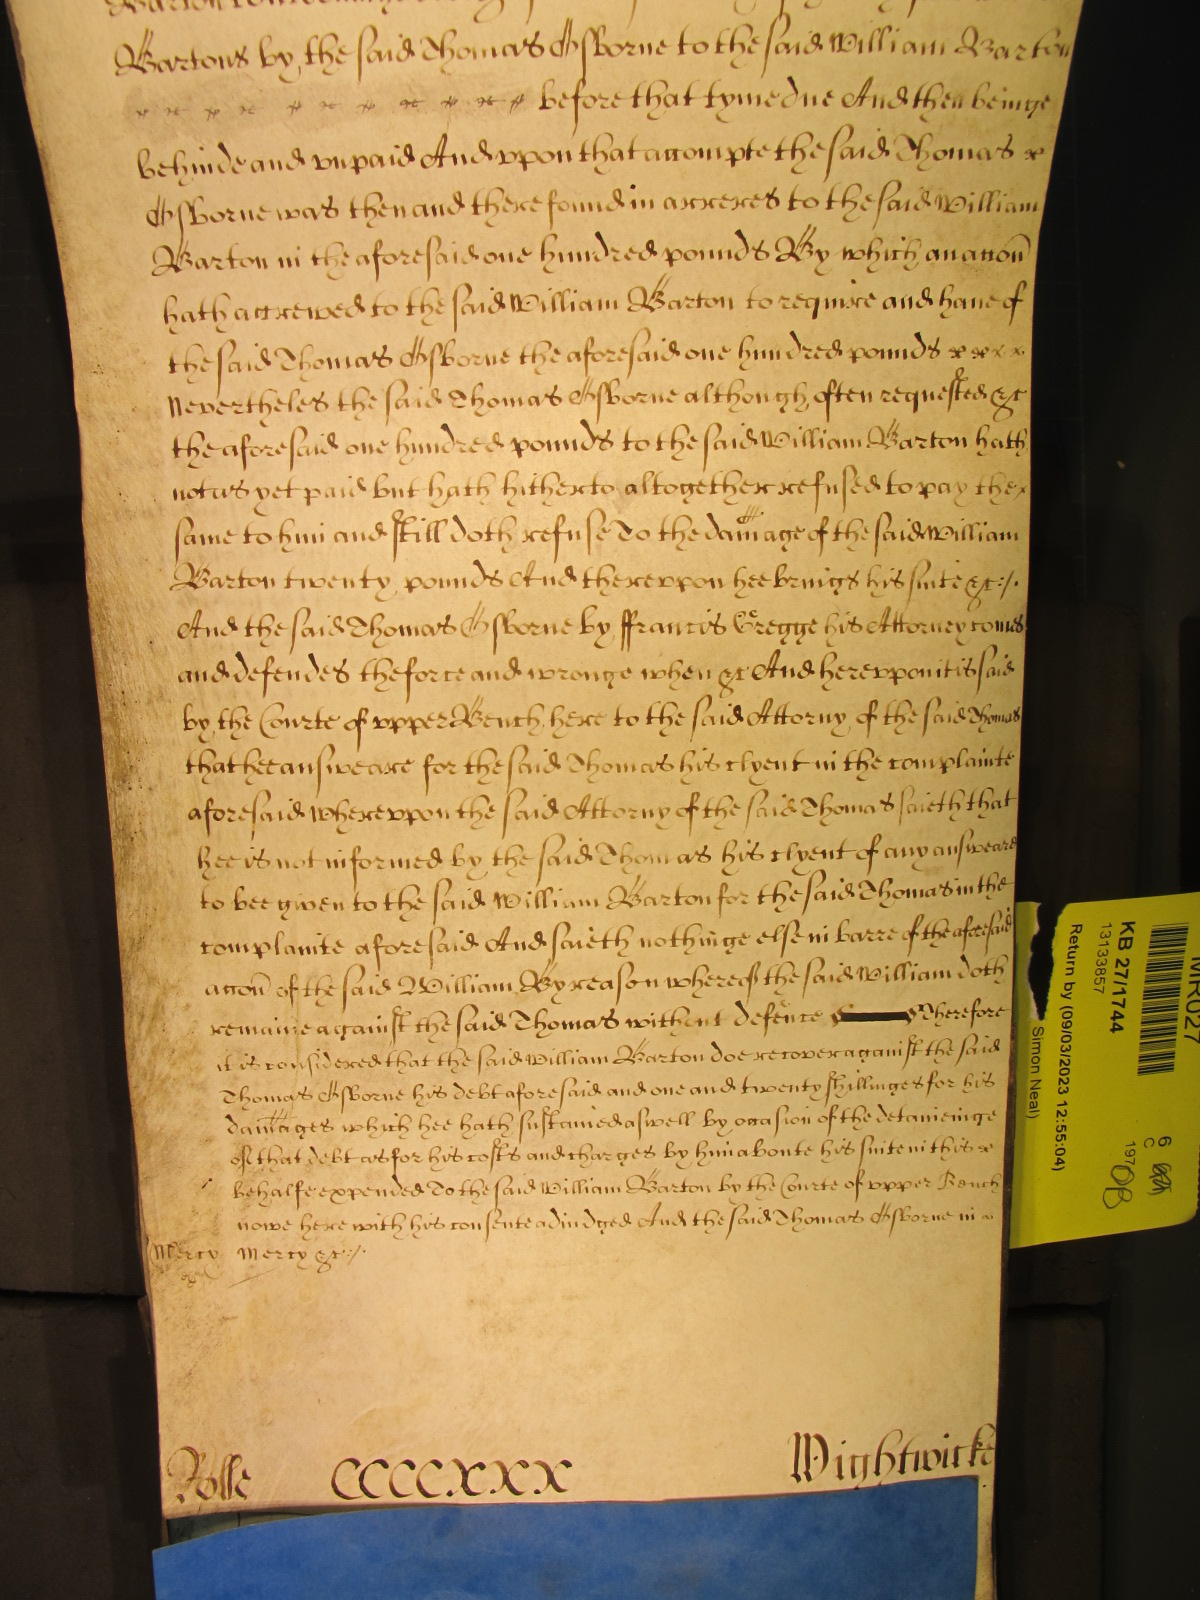 Bartons by the said Thomas Osborne to the said William Barton
x x x x x x x x x before that tyme due And then beinge
behinde and vnpaid And vpon that accompte the said Thomas x
Osborne was then and there found in arreres to the said William
Barton in the aforesaid one hundred pounds By which an accōn
hath accrewed to the said William Barton to require and haue of
the said Thomas Osborne the aforesaid one hundred pounds x x x x
Nevertheles the said Thomas Osborne although often requested &c
the aforesaid one hundred pounds to the said William Barton hath
not as yet paid but hath hitherto altogether refused to pay the x
same to him and still doth refuse To the dam̄age of the said William
Barton twenty pounds And therevpon hee brings his suite &c:/.
And the said Thomas Osborne by ffrancis Gregge his Attorney comes
and defendes the force and wronge when &c And herevpon it is said
by the Courte of vpper Bench here to the said Attorny of the said Thomas
that hee answeare for the said Thomas his clyent in the complainte
aforesaid wherevpon the said Attorny of the said Thomas saieth that
hee is not informed by the said Thomas his clyent of any answeare
to bee given to the said William Barton for the said Thomas in the
complainte aforesaid And saieth nothinge else in barre of the aforesaid
accōn of the said William By reason whereof the said William doth
remaine against the said Thomas without defence Therefore
it is considered that the said William Barton doe recover against the said
Thomas Osborne his debt aforesaid and one and twenty shillinges for his
dam̄ages which hee hath sustained aswell by occasion of the detaineinge
of that debt as for his costs and charges by him aboute his suite in this x
behalfe expended To the said William Barton by the Courte of vpper Bench
nowe here with his consente adiudged And the said Thomas Osborne in x
Mercy Mercy &c:/.
Rolle CCCCXXX Wightwicke
MR027
KB 27/1744
13133857
Return by (09/03/2023 12:55:04)
Simon Neal)
6
C
197